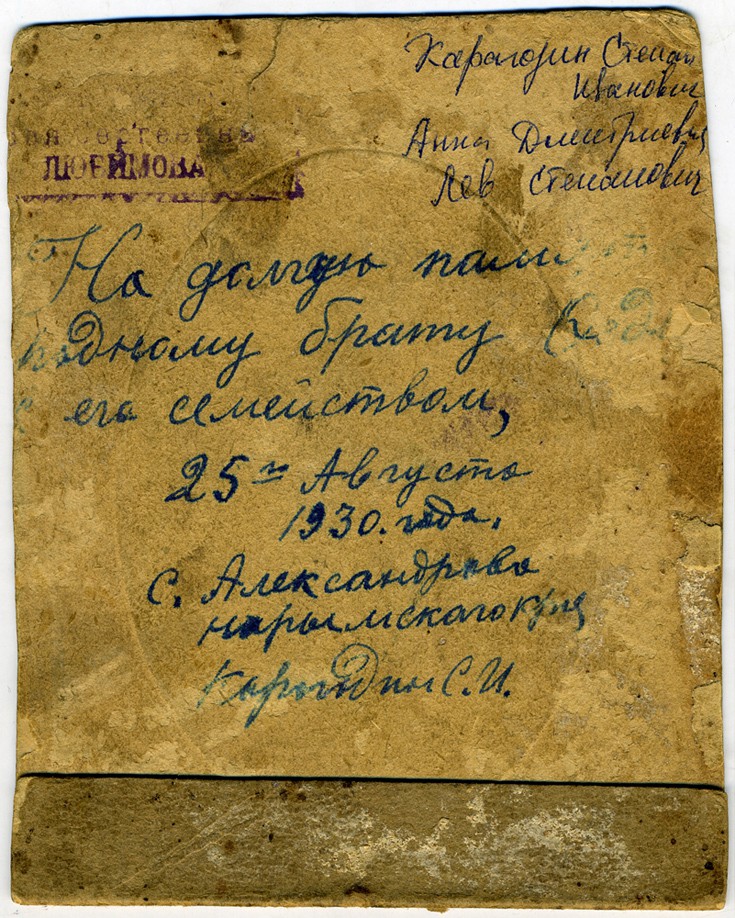 Карагодин Степан
Иванович
Анна Дмитриевна
Лев Степанович
ЛЮБИМОВА
На долгую память
Родному брату
с его семейством,
25го Августа
1930. года.
с. Александрово
нарымского края
Карагодин С.И.